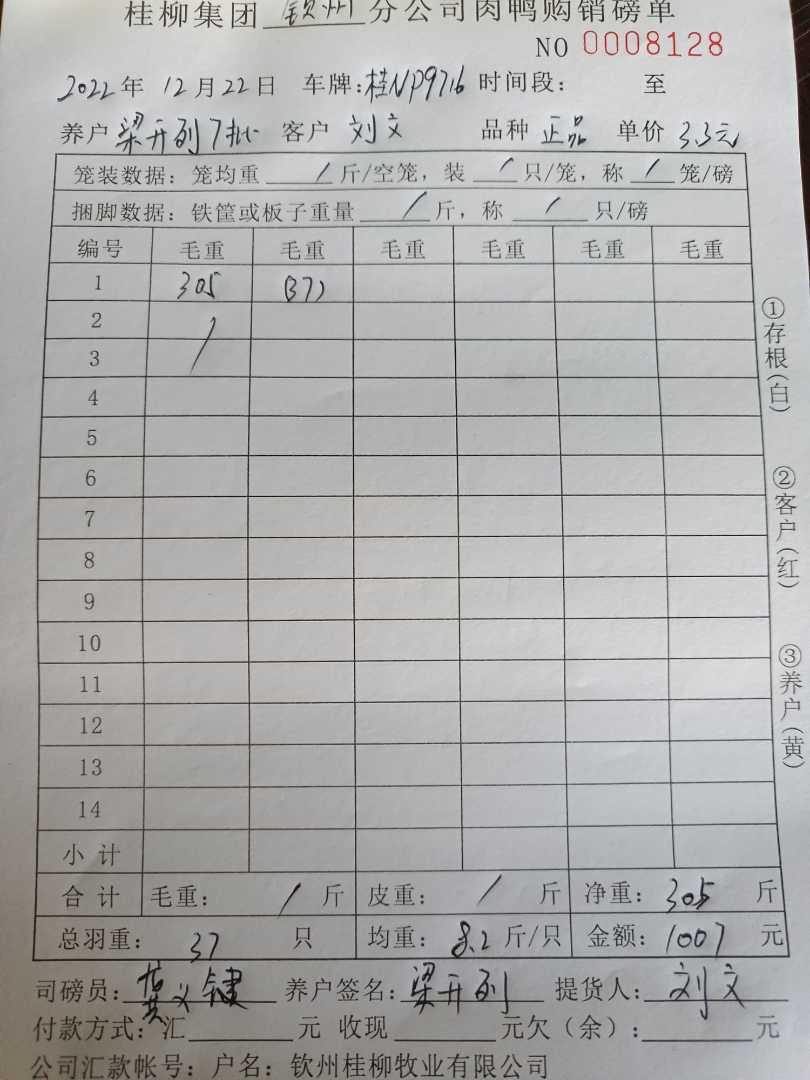 桂柳集团 钦州 分公司肉鸭购销磅单
NO 0008128
2022年 12月22日 车牌:桂NP9716 时间段: 至
养户 梁开列7批 客户 刘文 品种 正品 单价 3.3元
笼装数据:笼均重 / 斤/空笼,装 / 只/笼,称 / 笼/磅
捆脚数据:铁筐或板子重量 / 斤,称 / 只/磅
编号 毛重 毛重 毛重 毛重 毛重 毛重
1 305 (37)
2 /
3
4
5
6
7
8
9
10
11
12
13
14
小计
合计 毛重: / 斤 皮重: / 斤 净重: 305 斤
总羽重: 37 只 均重: 8.2 斤/只 金额: 1007 元
司磅员: 黄义键 养户签名: 梁开列 提货人: 刘文
付款方式:汇 元 收现 元欠(余): 元
公司汇款帐号:户名:钦州桂柳牧业有限公司
①存根(白)
②客户(红)
③养户(黄)